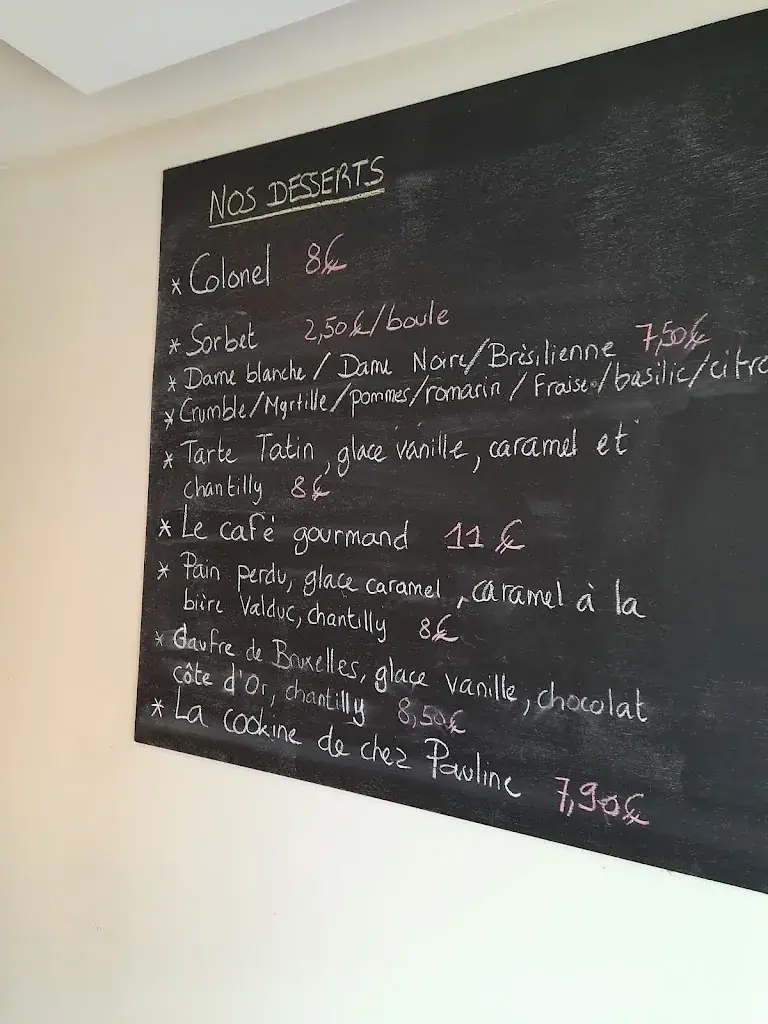 NOS DESSERTS
* Colonel 8€
* Sorbet 2,50€/boule
* Dame blanche / Dame Noire/Brésilienne 7,50€
* Crumble/Myrtille/pommes/romarin / Fraise/basilic/citro
* Tarte Tatin, glace vanille, caramel et
chantilly 8€
* Le café gourmand 11€
* Pain perdu, glace caramel, caramel à la
bière Valduc, chantilly 8€
* Gaufre de Bruxelles, glace vanille, chocolat
côte d'Or, chantilly 8,50€
* La cookine de chez Pauline 7,90€